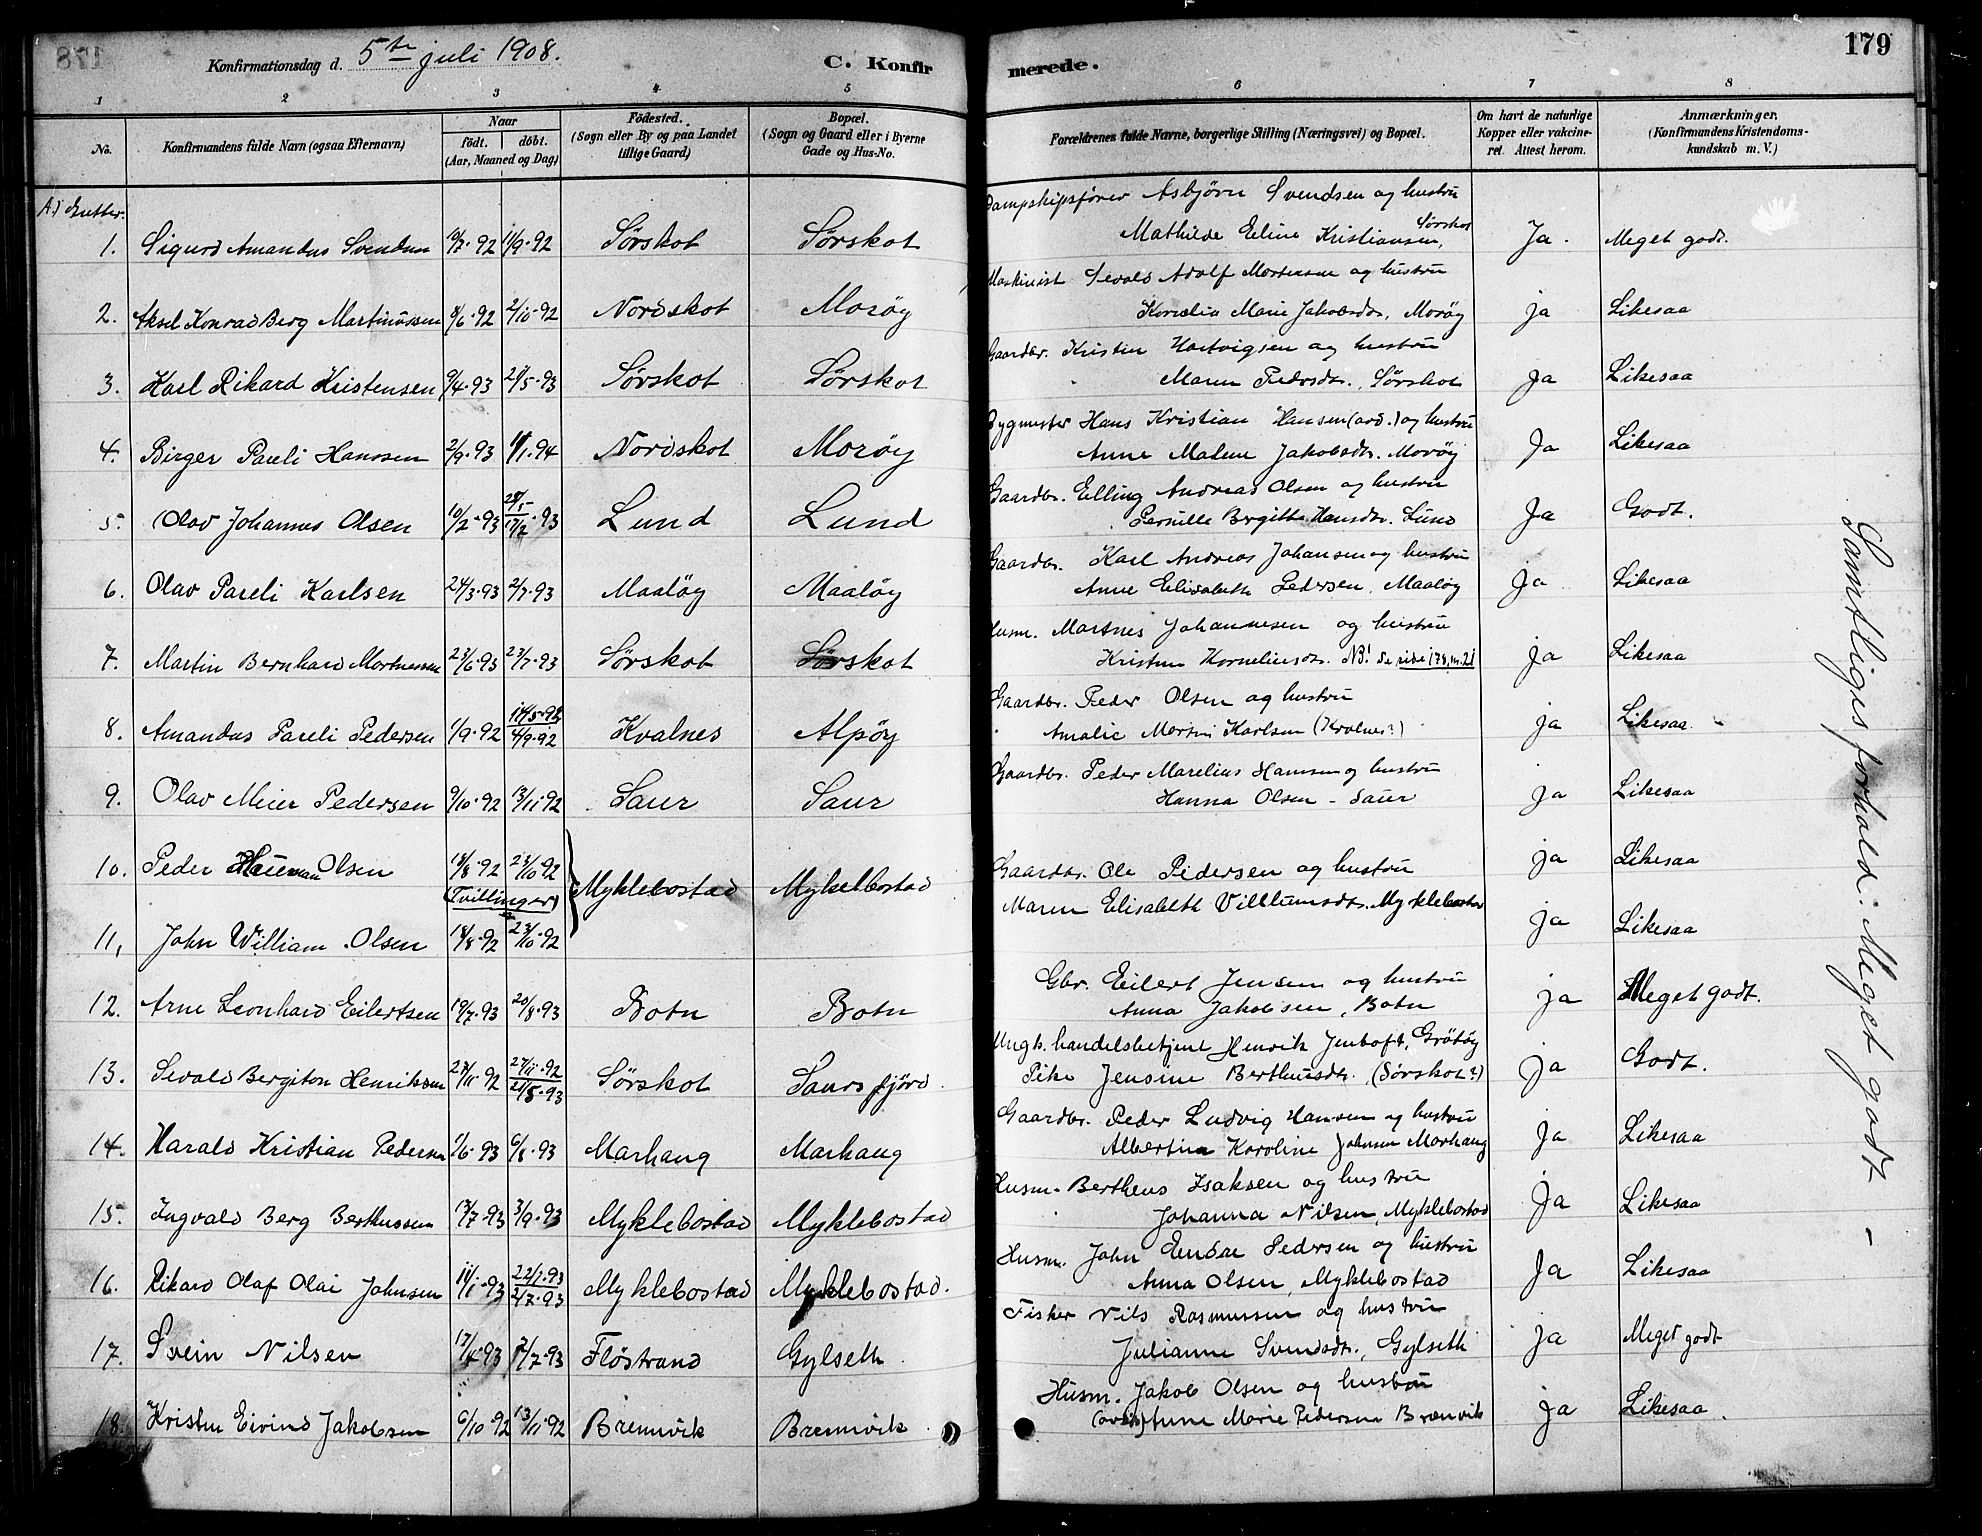 Konfirmationsdag d. 5te juli 1908.
C. Konfirmerede.
179
1 2 3 4 5 6 7 8
No.
Konfirmandens fulde Navn (ogsaa Efternavn)
Naar
födt. döbt.
(Aar, Maaned og Dag)
Födested.
(Sogn eller By og paa Landet
tillige Gaard)
Bopæl.
(Sogn og Gaard eller i Byerne
Gade og Hus-No.
Forældrenes fulde Navne, borgerlige Stilling (Næringsvei) og Bopæl.
Om havt de naturlige
Kopper eller vakcine-
ret. Attest herom.
Anmærkninger,
(Konfirmandens Kristendoms-
kundskab m. V.)
A) Gutter.
Dampskipsfører Asbjørn Svendsen og hustru
1. Sigurd Amandus Svendsen 10/7.92 11/9.92 Sørskot Sørskot Mathilde Eline Kristiansen, Sørskot Ja. Meget godt.
Maskinist Sevald Adolf Mortensen og hustru
2. Aksel Konrad Berg Martinussen 8/6.92 2/10.92 Nordskot Morøy Kornelia Marie Jakobsdr., Morøy ja Likesaa
Gaardbr. Kristen Hartvigsen og hustru
3. Karl Rikard Kristensen 9/4.93 21/5.93 Sørskot Sørskot Maren Pedersdr., Sørskot Ja Likesaa
Hans Kristian Hansen (død.) og hustru
4. Birger Pareli Hanssen 2/9.93 1/1.94 Nordskot Morøy Anne Malene Jakobsdr. Morøy Ja Likesaa
Gaardbr. Elling Andreas Olsen og hustru
5. Olav Johannes Olsen 10/2.93 .93 Lund Lund Pernille Bergitte Hansdr. Lund Ja Godt.
Gaardbr. Karl Andreas Johansen og hustru
6. Olav Pareli Karlsen 24/3.93 2/7.93 Maaløy Maaløy Anne Elisabeth Pedersen, Maaløy ja Likesaa
Husm. Martnes Johannesen og hustru
7. Martin Bernhard Mortnessen 23/6.93 23/7.93 Sørskot Sørskot Kristine Korneliusdr. NB! Se side 178, nr. 21 ja Likesaa
Gaardbr. Peder Olsen og hustru
8. Amandus Pareli Pedersen 1/9.92 4/9.92 Kvalnes Alpøy Amalie Karlsen (Kvalnes?) ja Likesaa.
Gaardbr. Peder Marelius Hansen og hustru
9. Olav Meier Pedersen 9/10.92 13/11.92 Saur Saur Hanna Olsen - Saur ja Likesaa
10. Peder Olsen 18/8.92 23/10.92 ja Likesaa
(Tvillinger) Myklebostad Mykelbostad Gaardbr. Ole Pedersen og hustru
Maren Elisabeth Villumsdr. Myklebostad
11, John William Olsen 18/8.92 23/10.92 ja Likesaa
Gbr. Eilert Jensen og hustru
12. Arne Leonhard Eilertsen 19/7.93 20/8.93 Botn Botn Anna Jakobsen, Botn ja Meget godt.
Ungk. handelsbetjent Henrik Jentoft, Grötøy
13. Sevald Bergiton Henriksen 27/11.92 27/11.92 21/5.93 Sørskot Saursfjörd. Pike Jensine Berthusdr. (Sørskot?) ja Godt.
Gaardbr. Peder Ludvig Hansen og hustru
14. Harald Kristian Pedersen 1/6.93 6/8.93 Marhaug Marhaug Albertina Karoline Johnsen Marhaug ja Likesaa
Husm. Bertheus Isaksen og hustru
15. Ingvald Berg Berthussen 13/7.93 3/9.93 Myklebostad Myklebostad Johanna Nilsen, Myklebostad Ja Likesaa
Husm. John Pedersen og hustru
16. Rikard Olaf Olai Johnsen 11/1.93 22/1.93 2/7.93 Myklebostad Myklebostad. Anna Olsen, Myklebostad Ja Likesaa
Fisker Nils Rasmussen og hustru
17. Svein Nilsen 17/4.93 2/7.93 Flöstrand Gylseth Julianne Svendsdr., Gylseth Ja Meget godt
Husm. Jakob Olsen og hustru
18. Kristen Eivind Jakobsen 6/10.92 13/11.92 Bremvik Bremvik Anne Marie Pedersen Brenvik Ja Likesaa.
Samtliges forhold: Meget godt -